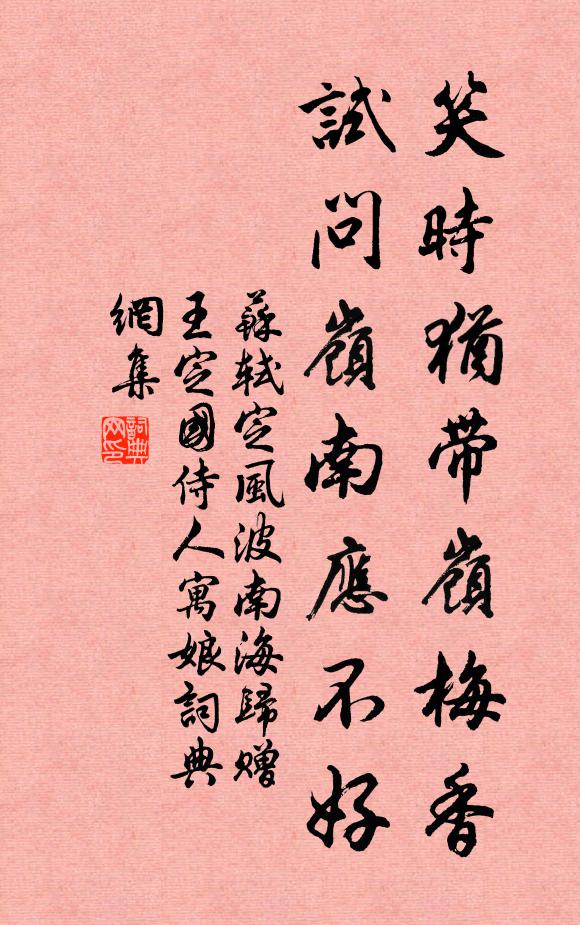 笑時猶帶嶺梅香
試問嶺南應不好
蘇軾定風波南海歸贈
王定國侍人寓娘詞典
網集
詞典
网印